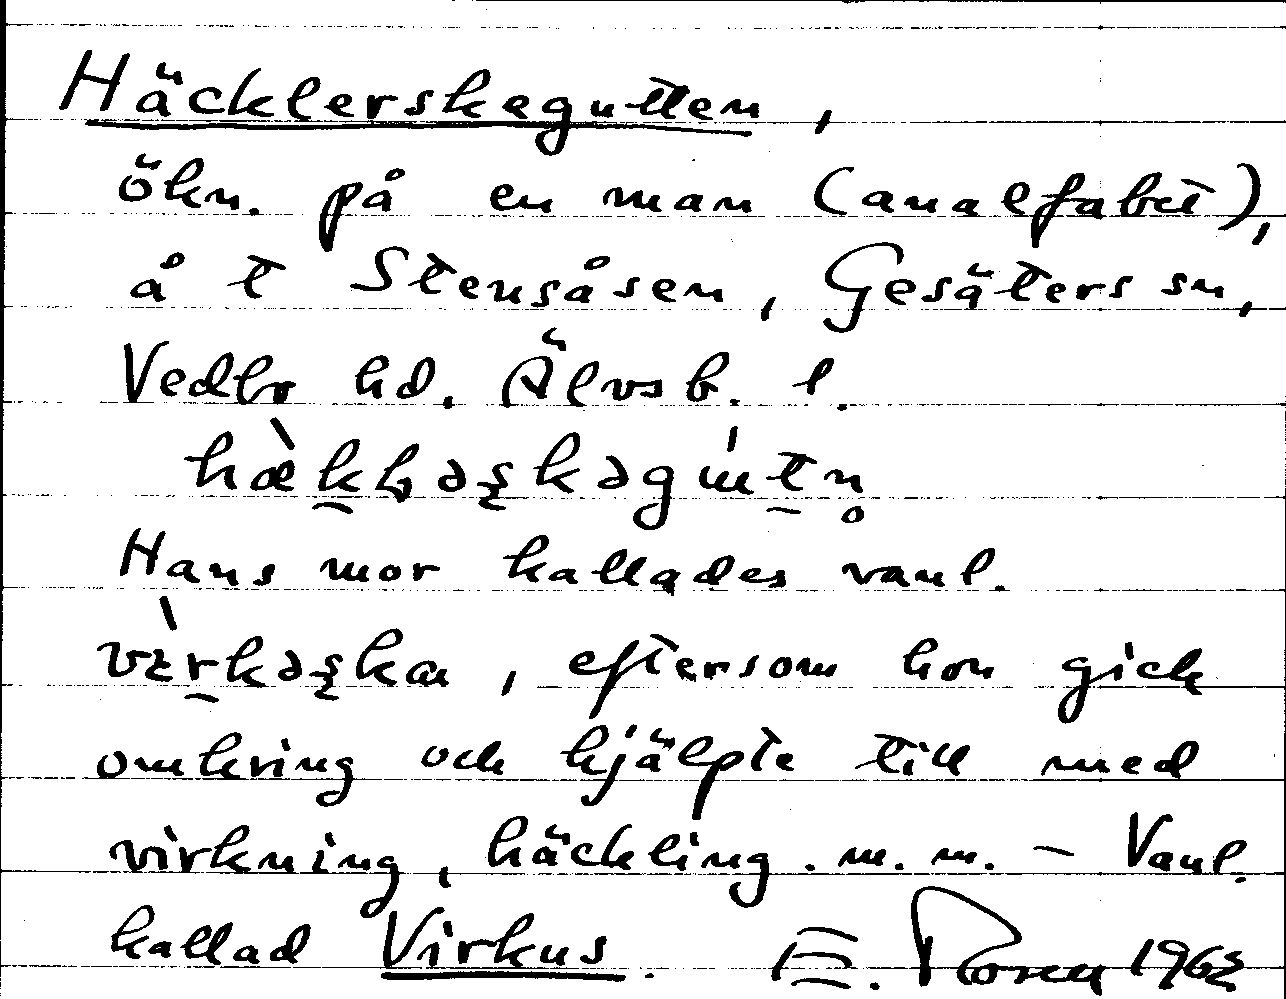 Häcklerskegutten,
ökn. på en man (analfabet),
å t Stensåsen, Gesäters sn,
Vedbo hd. Älvsb. l.
Hans mor kallades vanl.
, eftersom hon gick
omkring och hjälpte till med
virkning, häckling. m. m. - Vanl.
kallad Virkus. E. Rosell